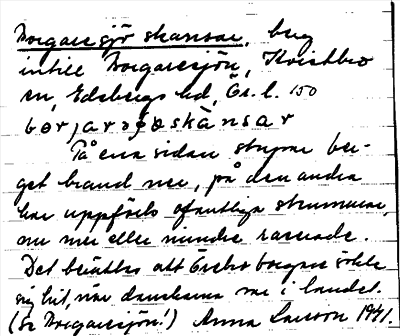 Borgaresjö skansar, berg
intill Borgaresjön, Kvistbro
sn, Edsbergs hd, Ör. l. 150
bòrjarəʃøskànsar
På ena sidan stupar ber-
get brand ner, på den andra
har uppförts ofantliga stenmurar,
nu mer eller mindre raserade.
Det berättas att Örebro borgare sökte
sig hit, när danskarna var i landet.
(Se Borgaresjön!) Anna Larsson 1941.